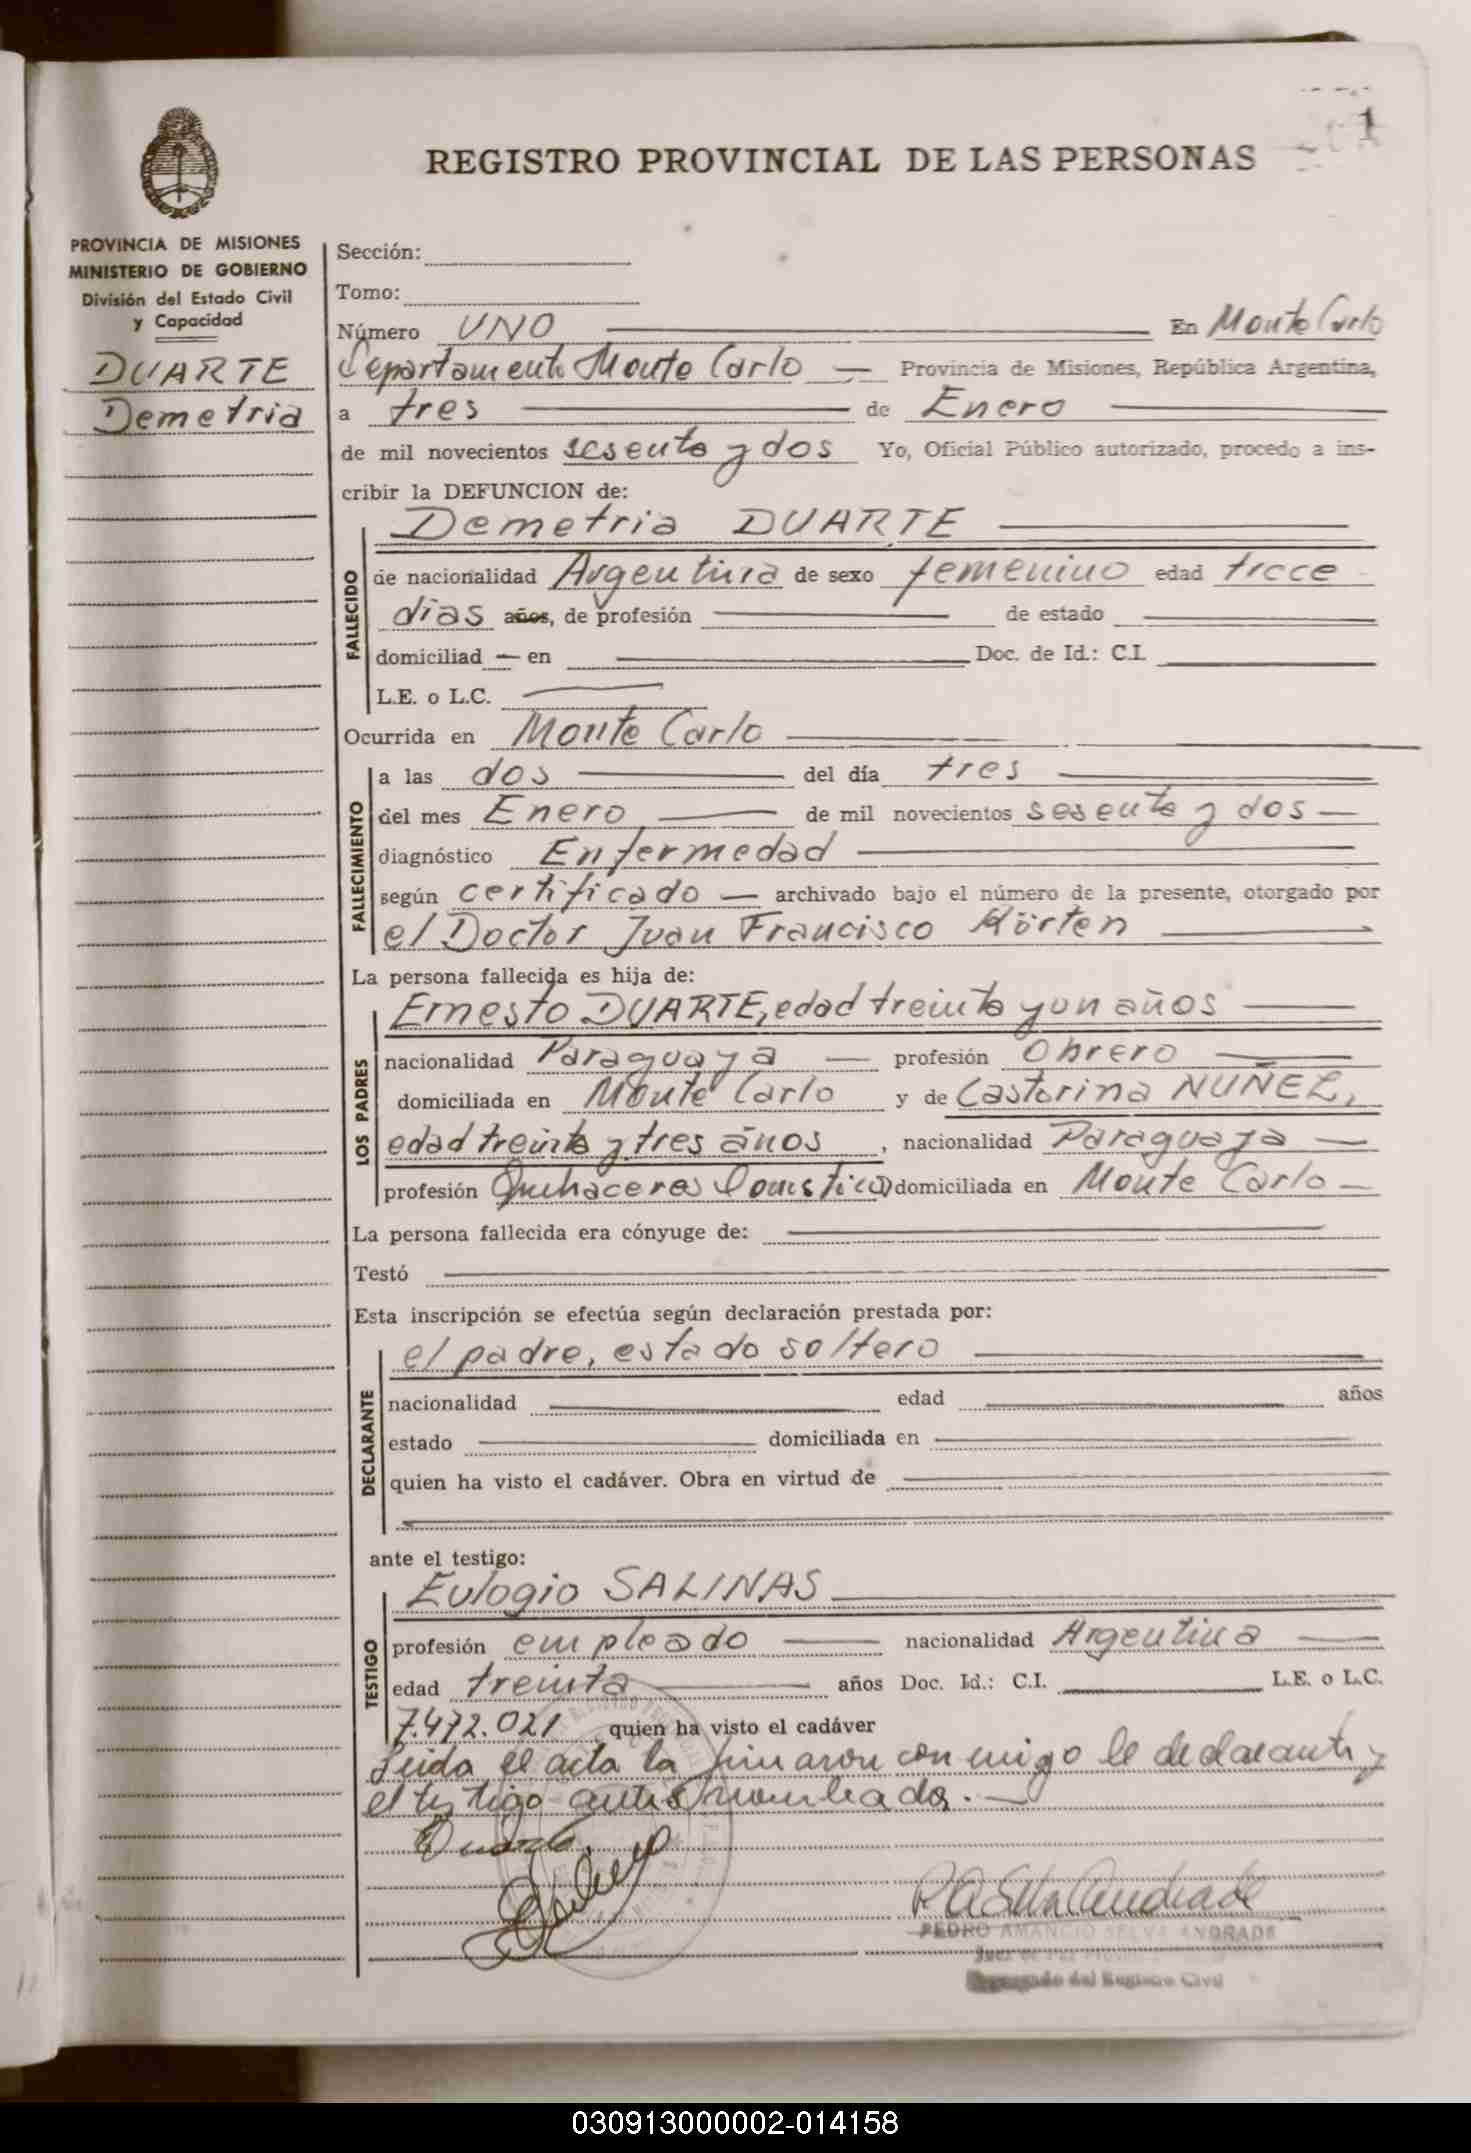 1
REGISTRO PROVINCIAL DE LAS PERSONAS
PROVINCIA DE MISIONES
MINISTERIO DE GOBIERNO
División del Estado Civil
y Capacidad
DUARTE
Demetria
Sección:
Tomo:
Número UNO En Monte Carlo
Departamento Monte Carlo — Provincia de Misiones, República Argentina,
a tres de Enero
de mil novecientos sesenta y dos Yo, Oficial Público autorizado, procedo a ins-
cribir la DEFUNCION de:
FALLECIDO
Demetria DUARTE
de nacionalidad Argentina de sexo femenino edad trece
días años, de profesión de estado
domiciliad — en Doc. de Id.: C.I.
L.E. o L.C.
Ocurrida en Monte Carlo
FALLECIMIENTO
a las dos del día tres
del mes Enero de mil novecientos sesenta y dos —
diagnóstico Enfermedad
según certificado — archivado bajo el número de la presente, otorgado por
el Doctor Juan Francisco Körten
La persona fallecida es hija de:
LOS PADRES
Ernesto DUARTE, edad treinta y un años
nacionalidad Paraguaya — profesión Obrero
domiciliada en Monte Carlo y de Castorina NUÑEZ,
edad treinta y tres años, nacionalidad Paraguaya —
profesión Quehaceres Domésticos domiciliada en Monte Carlo —
La persona fallecida era cónyuge de:
Testó
Esta inscripción se efectúa según declaración prestada por:
DECLARANTE
el padre, estado soltero
nacionalidad edad años
estado domiciliada en
quien ha visto el cadáver. Obra en virtud de
ante el testigo:
TESTIGO
Eulogio SALINAS
profesión empleado nacionalidad Argentina —
edad treinta años Doc. Id.: C.I. L.E. o L.C.
7.472.021 quien ha visto el cadáver
Leida el acta la firmaron conmigo le declarante y
el testigo antes nombrados.—
Duarte
PEDRO AMANCIO SELVA ANDRADE
Encargado del Registro Civil
030913000002-014158